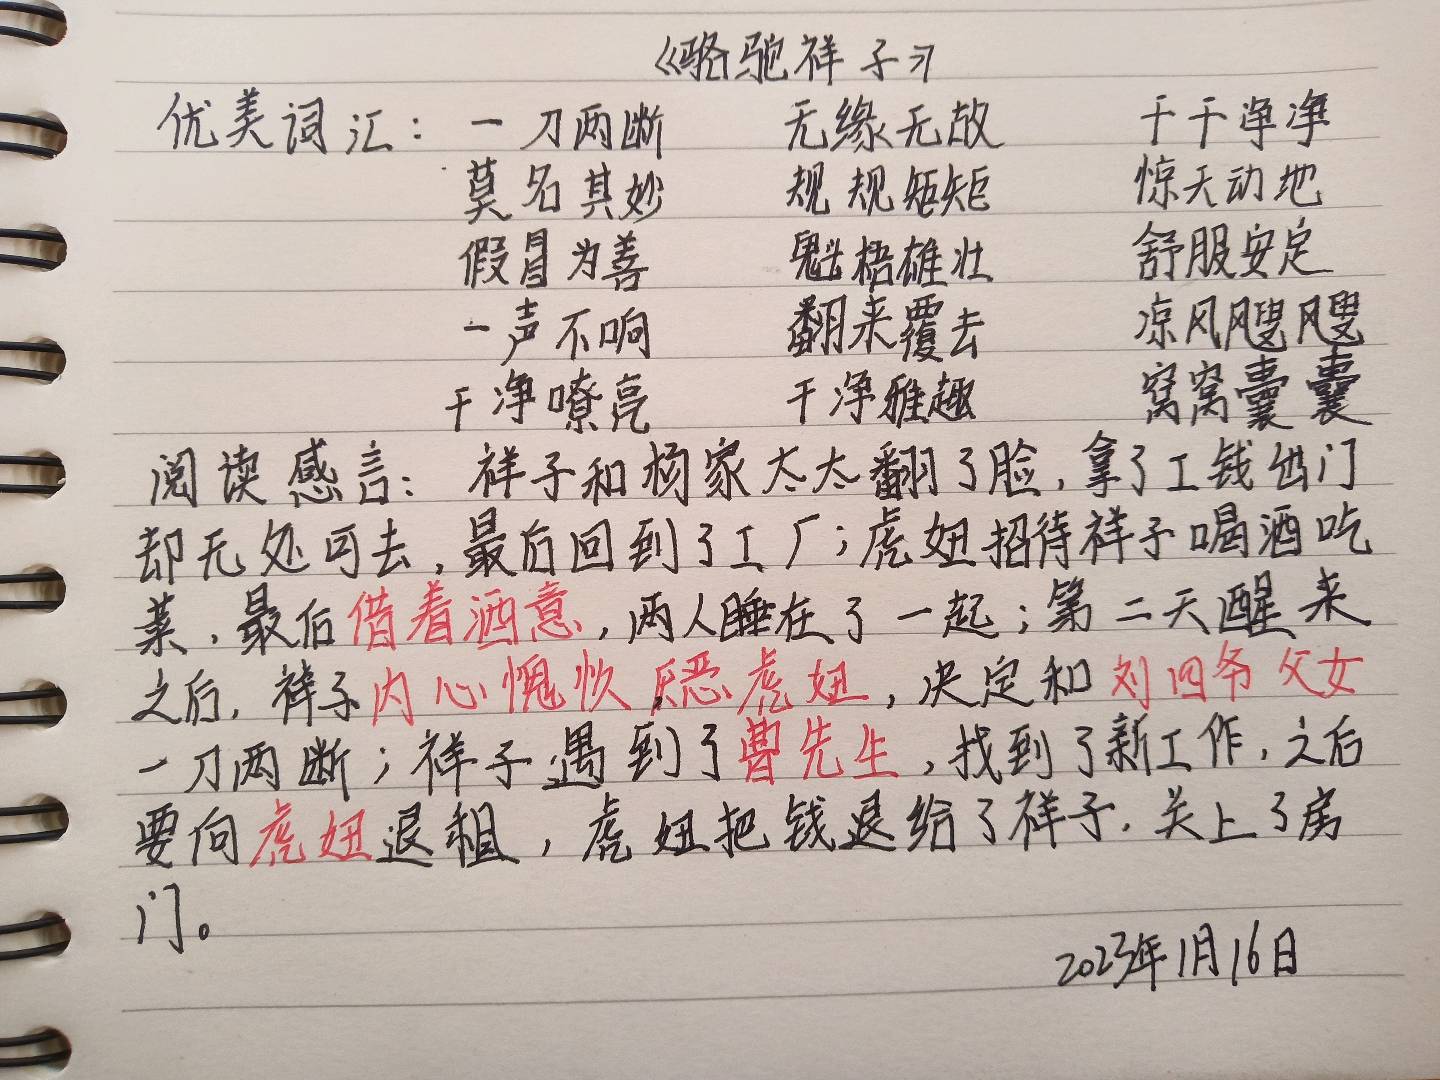 《骆驼祥子》
优美词汇：一刀两断 无缘无故 干干净净
莫名其妙 规规矩矩 惊天动地
假冒为善 魁梧雄壮 舒服安定
一声不响 翻来覆去 凉风飕飕
干净嘹亮 干净雅趣 窝窝囊囊
阅读感言：祥子和杨家太太翻了脸，拿了工钱出门
却无处可去，最后回到了工厂；虎妞招待祥子喝酒吃
菜，最后借着酒意，两人睡在了一起；第二天醒来
之后，祥子内心愧疚厌恶虎妞，决定和刘四爷父女
一刀两断；祥子遇到了曹先生，找到了新工作，之后
要向虎妞退租，虎妞把钱退给了祥子，关上了房
门。
2023年1月16日